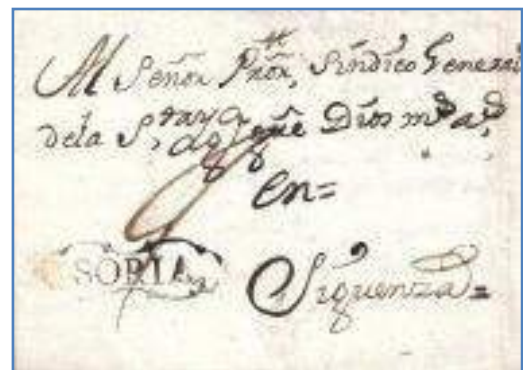 Al Señor Prõr, Sindico General
dela S,
que Dios m.s a.s
en=
SORIA
Siguenza=